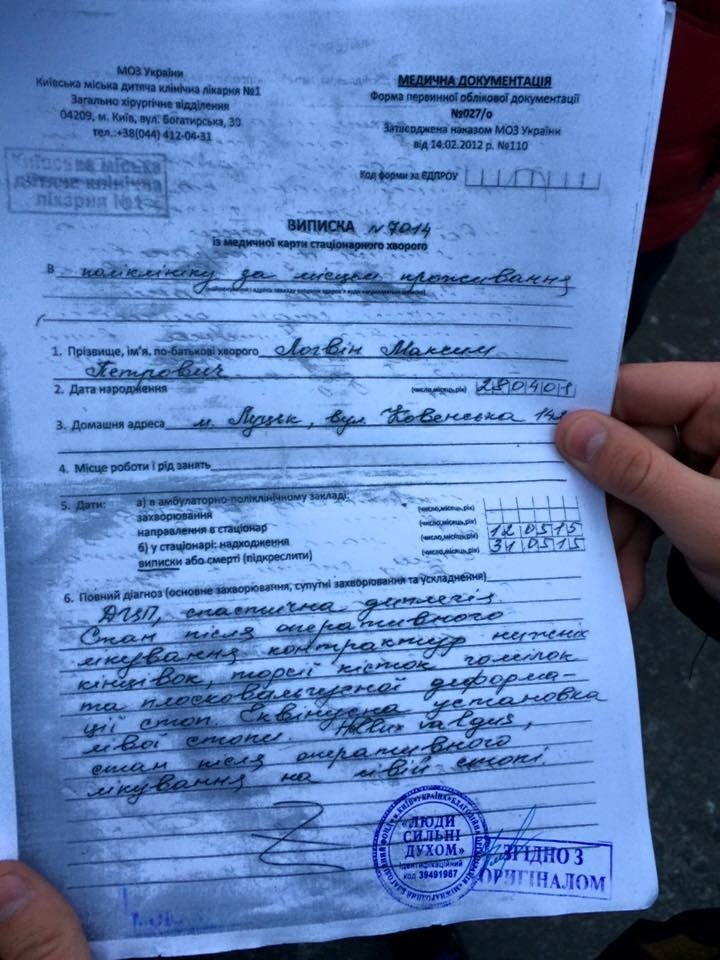 МОЗ України
Київська міська дитяча клінічна лікарня №1
Загально хірургічне відділення
04209, м. Київ, вул. Богатирська, 30
тел.:+38(044) 412-04-31
Київська міська
дитяча клінічна
лікарня №1
МЕДИЧНА ДОКУМЕНТАЦІЯ
Форма первинної облікової документації
№027/о
Затверджена наказом МОЗ України
від 14.02.2012 р. №110
Код форми за ЄДПРОУ
ВИПИСКА №7014
із медичної карти стаціонарного хворого
В поліклініку за місцем проживання
1. Прізвище, ім'я, по-батькові хворого Логвін Максим
Петрович
2. Дата народження (число,місяць,рік) 280401
3. Домашня адреса м. Луцьк, вул. Ковельська
4. Місце роботи і рід занять
5. Дати: а) в амбулаторно-поліклінічному закладі:
захворювання (число,місяць,рік)
направлення в стаціонар (число,місяць,рік)
б) у стаціонарі: надходження (число,місяць,рік) 120515
виписки або смерті (підкреслити) (число,місяць,рік) 310515
6. Повний діагноз (основне захворювання, супутні захворювання та ускладнення)
ДЦП, спастична диплегія
Стан після оперативного
лікування контрактур нижніх
кінцівок, торсії кісток гомілок
та плосковальгусної деформа-
ції стоп. Еквінусна установка
лівої стопи. Hallux valgus,
стан після оперативного
лікування на лівій стопі.
«ЛЮДИ
СИЛЬНІ
ДУХОМ»
Ідентифікаційний
код 39491967
ЗГІДНО З
ОРИГІНАЛОМ